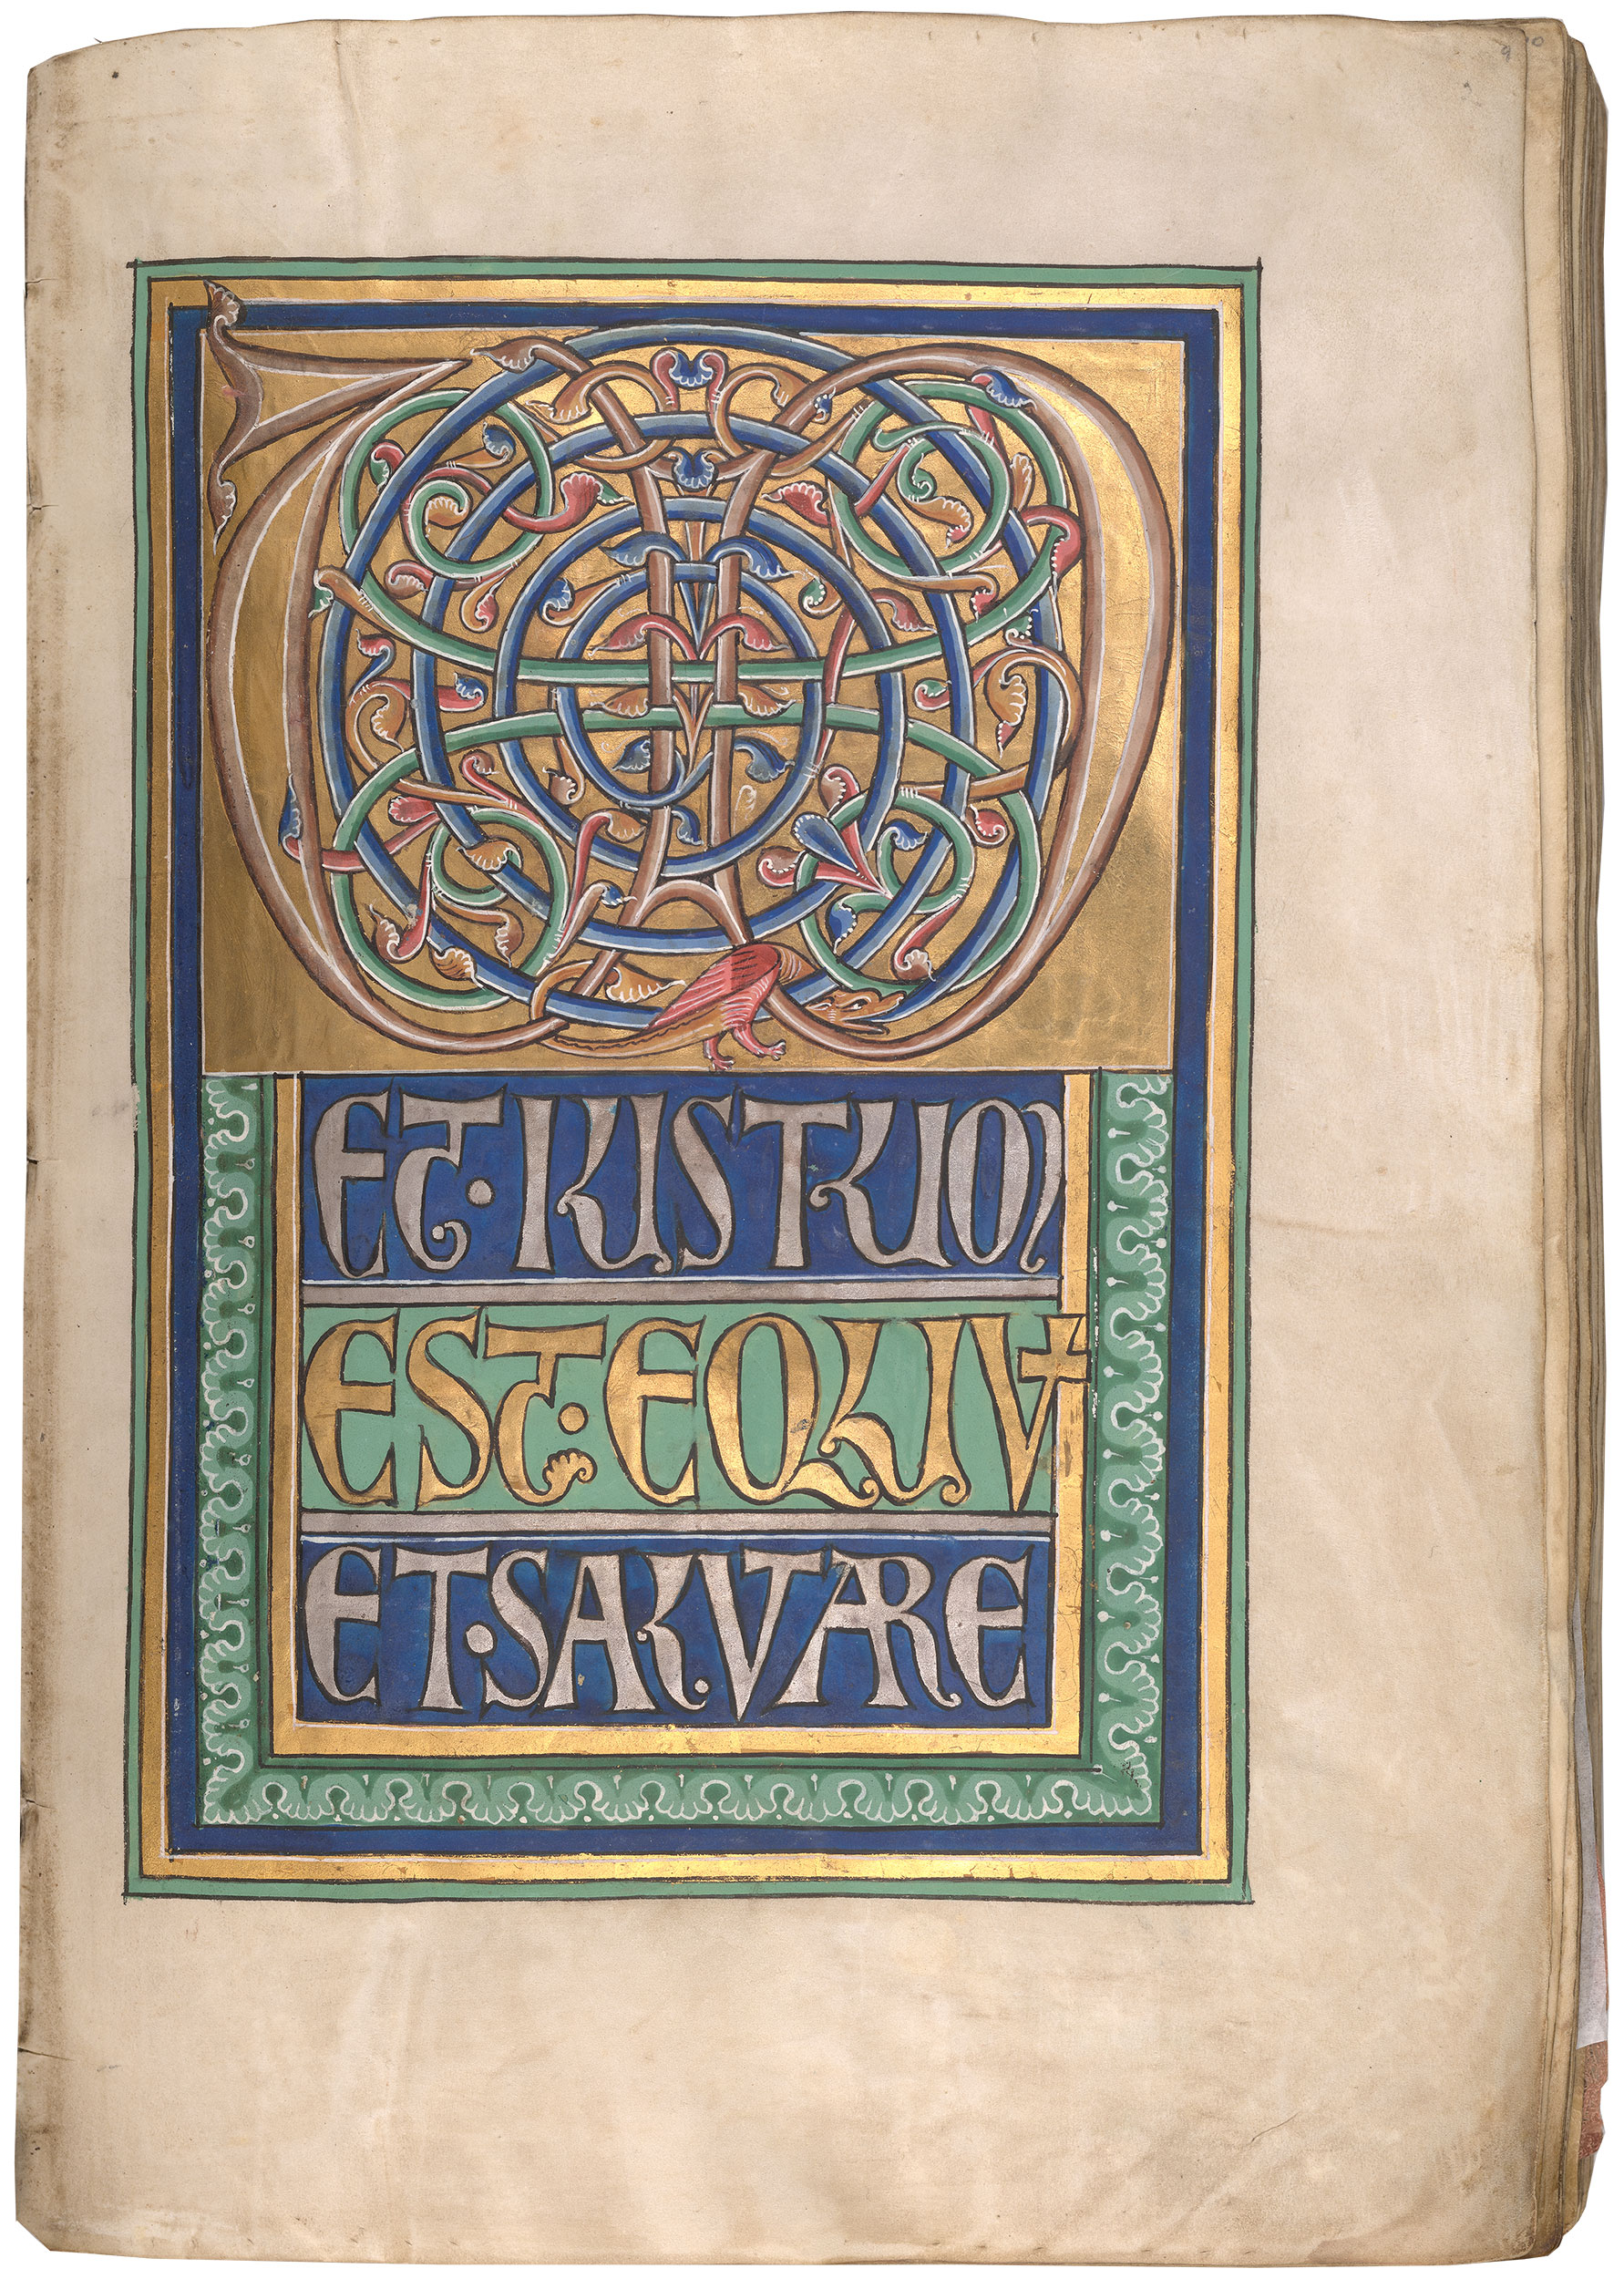 VD
ET·IUSTUM
EST·EQUV
ET·SALVTARE